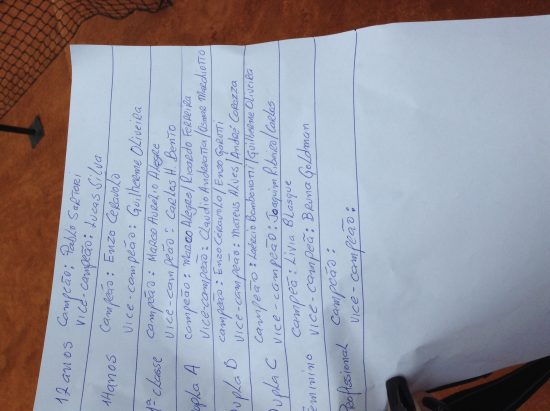 12 anos Campeão: Pablo Sartori
Vice-campeão: Lucas Silva
14 anos Campeão: Enzo Ceravolo
Vice-campeão: Guilherme Oliveira
1ª classe campeão: Marco Aurélio Alegre
Vice-campeão: Carlos H. Bento
upla A campeão: Marco Alegre/Ricardo Ferreira
Vice-campeão: Claudio Andreatta/Osmar Marchiotto
upla B campeão: Enzo Ceravolo/Enzo
Vice-campeão: Mateus Alves/André Corazza
upla C campeão: Laércio /Guilherme Oliveira
Vice-campeão: Joaquim Ribeiro/Carlos
eminino Campeã: Livia Blasque
Vice-campeã: Bruna Goldman
Profissional Campeão:
Vice-campeão: